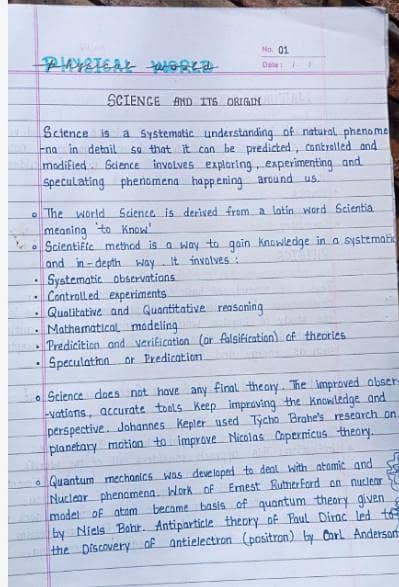 No. 01
Date: / /
PHYSICAL WORLD
SCIENCE AND ITS ORIGIN
Science is a systematic understanding of natural phenome
-na in detail so that it can be predicted, controlled and
modified. Science involves exploring, experimenting and
speculating phenomena happening around us.
The world Science is derived from a latin word Scientia
meaning 'to know'
Scientific method is a way to gain knowledge in a systematic
and in-depth way. It involves :
• Systematic observations
• Controlled experiments
• Qualitative and Quantitative reasoning
• Mathematical modeling
• Predicition and verification (or falsification) of theories
• Speculation or Predication
Science does not have any final theory. The improved obser
-vations, accurate tools keep improving the knowledge and
perspective. Johannes Kepler used Tycho Brahe's research on
planetary motion to improve Nicolas Copernicus theory.
Quantum mechanics was developed to deal with atomic and
Nuclear phenomena. Work of Ernest Rutherford on nuclear
model of atom became basis of quantum theory given
by Niels Bohr. Antiparticle theory of Paul Dirac led to
the Discovery of antielectron (positron) by Carl Anderson